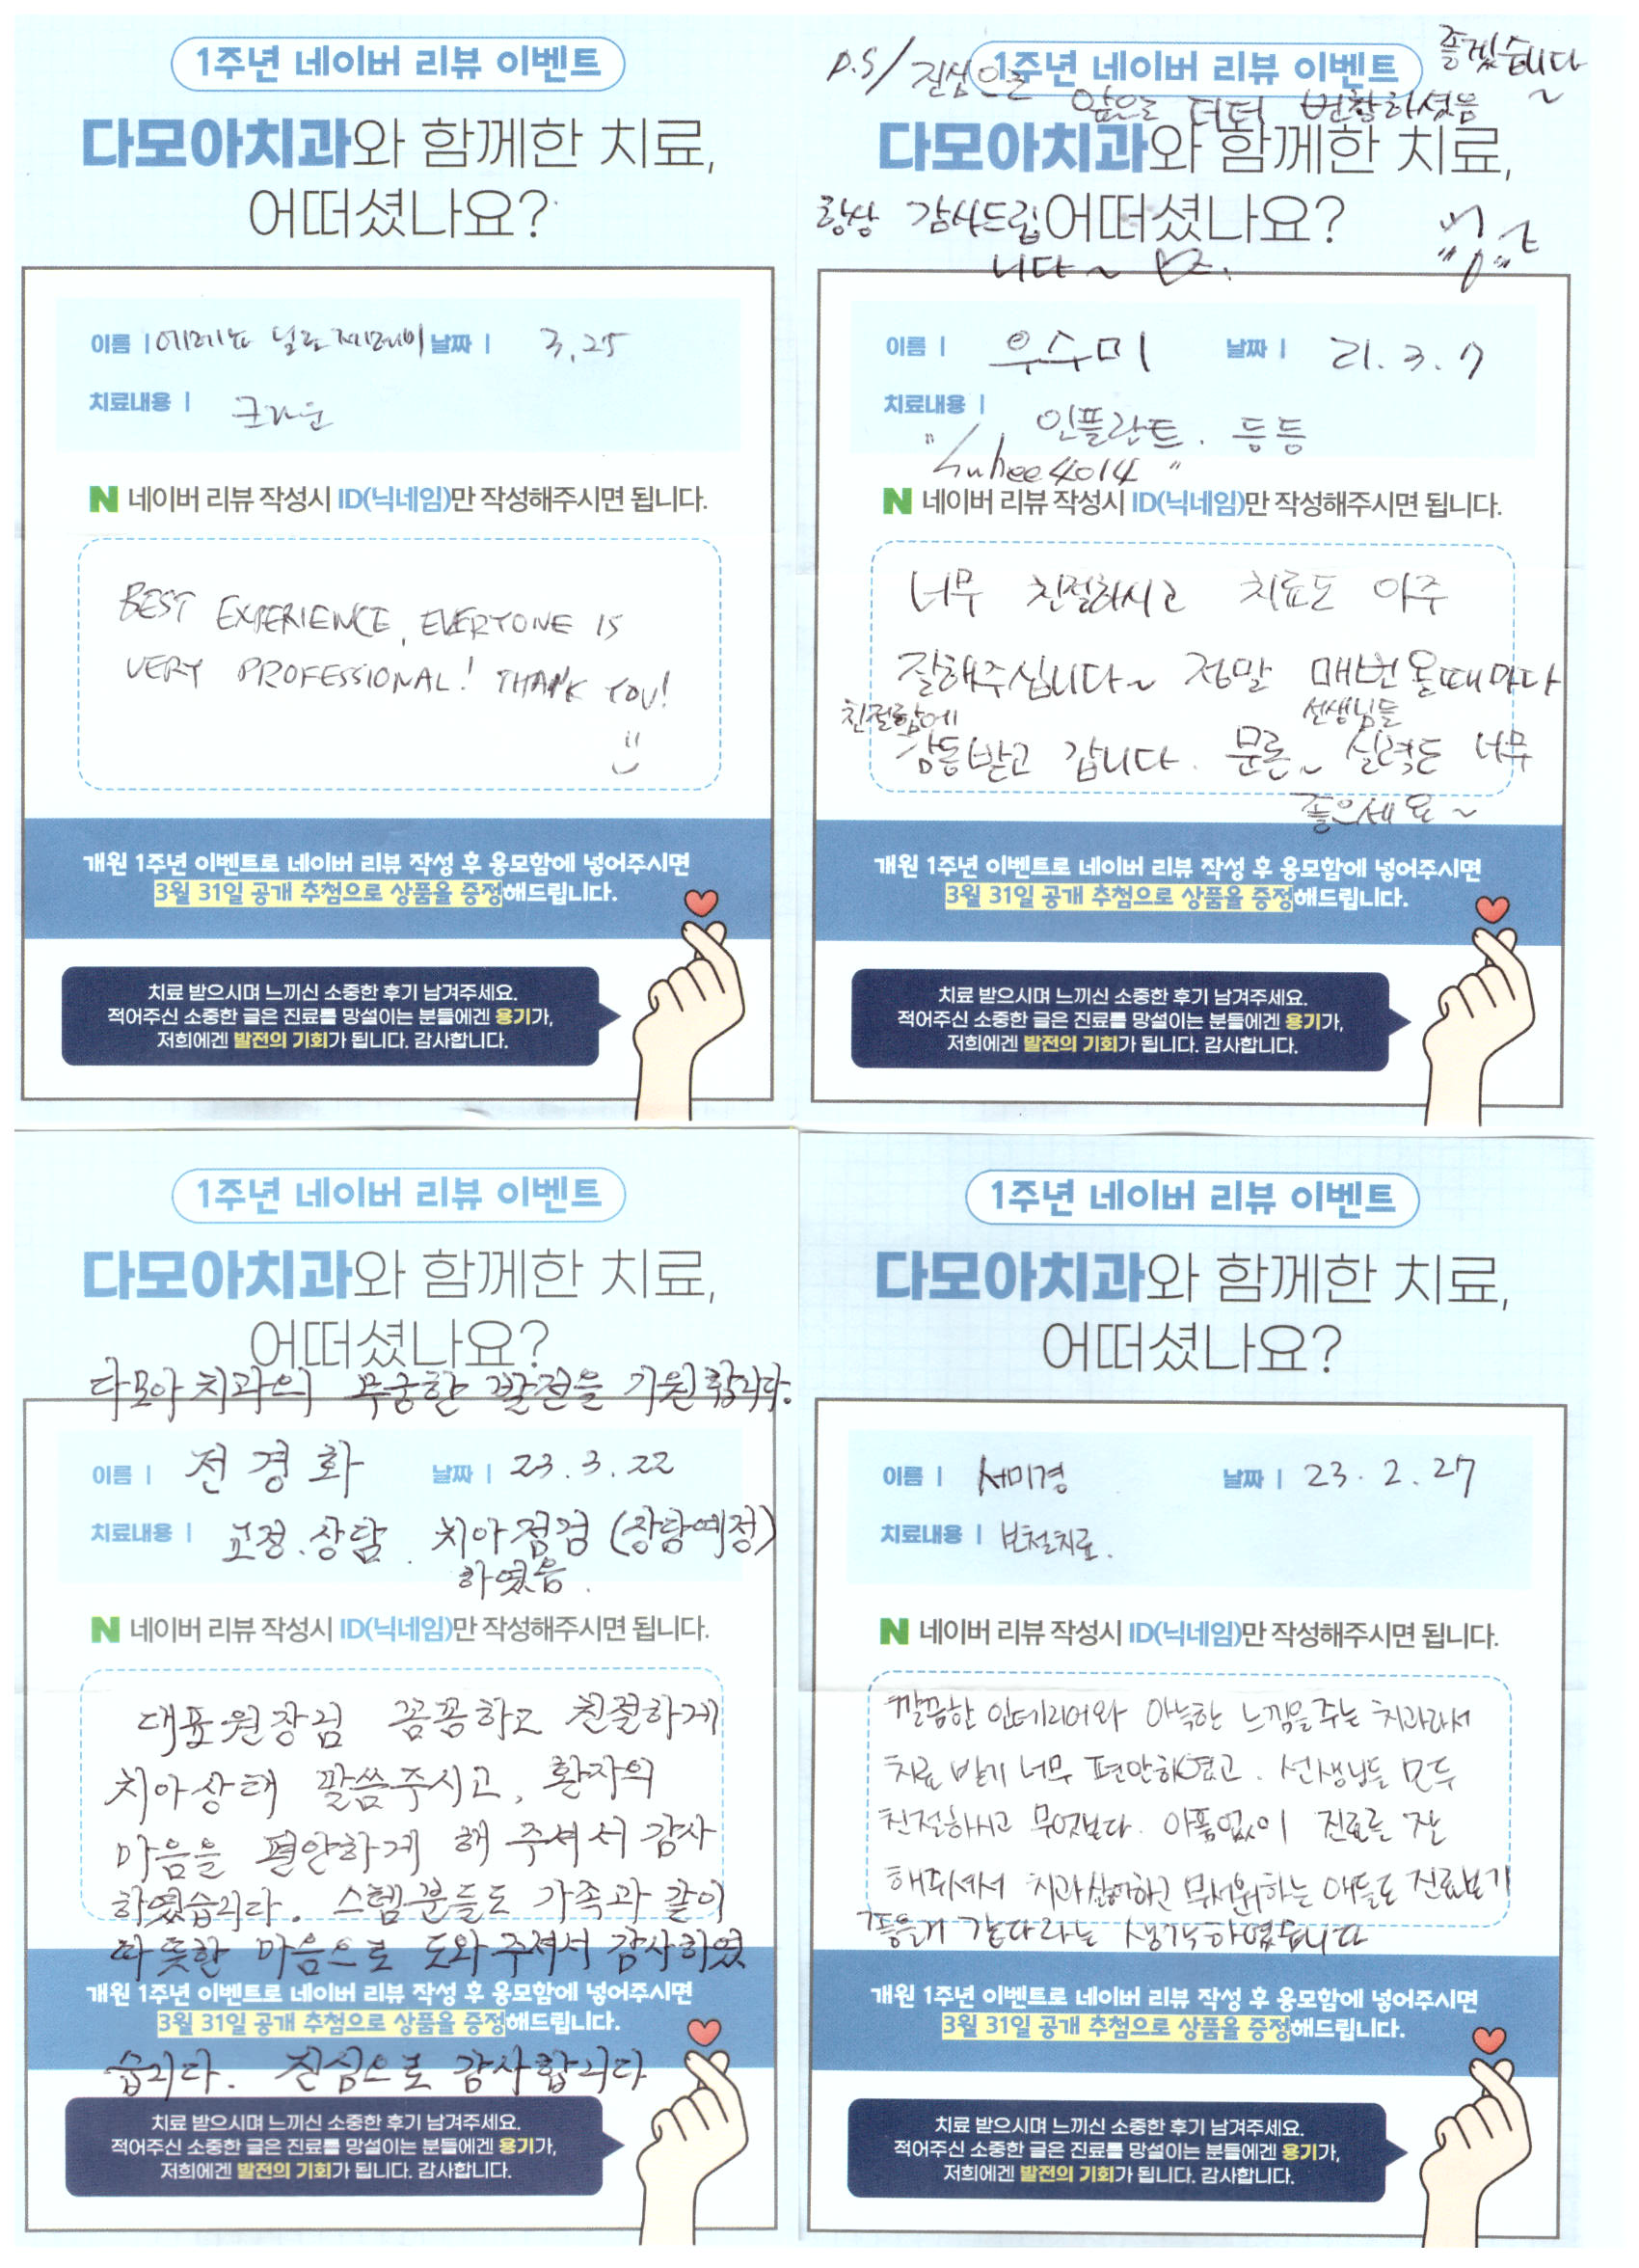 1주년 네이버 리뷰 이벤트
다모아치과와 함께한 치료,
어떠셨나요?
이름 | 날짜 | 3.25
치료내용 | 크라운
N 네이버 리뷰 작성시 ID(닉네임)만 작성해주시면 됩니다.
BEST EXPERIENCE, EVERYONE IS
VERY PROFESSIONAL! THANK YOU!
개원 1주년 이벤트로 네이버 리뷰 작성 후 응모함에 넣어주시면
3월 31일 공개 추첨으로 상품을 증정해드립니다.
치료 받으시며 느끼신 소중한 후기 남겨주세요.
적어주신 소중한 글은 진료를 망설이는 분들에겐 용기가,
저희에겐 발전의 기회가 됩니다. 감사합니다.
P.S/ 진심으로 앞으로 더더 번함하셨음 좋겠습니다~
항상 감사드립니다~
1주년 네이버 리뷰 이벤트
다모아치과와 함께한 치료,
어떠셨나요?
이름 | 우수미 날짜 | 21. 3. 7
치료내용 | 인플란트. 등등
"suhee4014"
N 네이버 리뷰 작성시 ID(닉네임)만 작성해주시면 됩니다.
너무 친절하시고 치료도 아주
잘해주십니다~ 정말 매번 올때마다
친절함에 감동받고 갑니다. 물론~ 선생님들 실력도 너무
좋으세요~
개원 1주년 이벤트로 네이버 리뷰 작성 후 응모함에 넣어주시면
3월 31일 공개 추첨으로 상품을 증정해드립니다.
치료 받으시며 느끼신 소중한 후기 남겨주세요.
적어주신 소중한 글은 진료를 망설이는 분들에겐 용기가,
저희에겐 발전의 기회가 됩니다. 감사합니다.
1주년 네이버 리뷰 이벤트
다모아치과와 함께한 치료,
어떠셨나요?
다모아 치과의 무궁한 발전을 기원합니다.
이름 | 전경화 날짜 | 23. 3. 22
치료내용 | 교정. 상담. 치아점검 (상담예정)
하였음.
N 네이버 리뷰 작성시 ID(닉네임)만 작성해주시면 됩니다.
대표원장님 꼼꼼하고 친절하게
치아상태 말씀주시고, 환자의
마음을 편안하게 해 주셔서 감사
하였습니다. 스텝분들도 가족과 같이
따뜻한 마음으로 도와주셔서 감사하였
개원 1주년 이벤트로 네이버 리뷰 작성 후 응모함에 넣어주시면
3월 31일 공개 추첨으로 상품을 증정해드립니다.
습니다. 진심으로 감사합니다
치료 받으시며 느끼신 소중한 후기 남겨주세요.
적어주신 소중한 글은 진료를 망설이는 분들에겐 용기가,
저희에겐 발전의 기회가 됩니다. 감사합니다.
1주년 네이버 리뷰 이벤트
다모아치과와 함께한 치료,
어떠셨나요?
이름 | 서미경 날짜 | 23. 2. 27
치료내용 | 보철치료.
N 네이버 리뷰 작성시 ID(닉네임)만 작성해주시면 됩니다.
깔끔한 인테리어와 아늑한 느낌을 주는 치과라서
치료 받기 너무 편안하였고. 선생님들 모두
친절하시고 무엇보다. 아픔없이 진료를 잘
해주셔서 치과싫어하고 무서워하는 애들도 진료보기
좋을거 같다라는 생각하였습니다
개원 1주년 이벤트로 네이버 리뷰 작성 후 응모함에 넣어주시면
3월 31일 공개 추첨으로 상품을 증정해드립니다.
치료 받으시며 느끼신 소중한 후기 남겨주세요.
적어주신 소중한 글은 진료를 망설이는 분들에겐 용기가,
저희에겐 발전의 기회가 됩니다. 감사합니다.